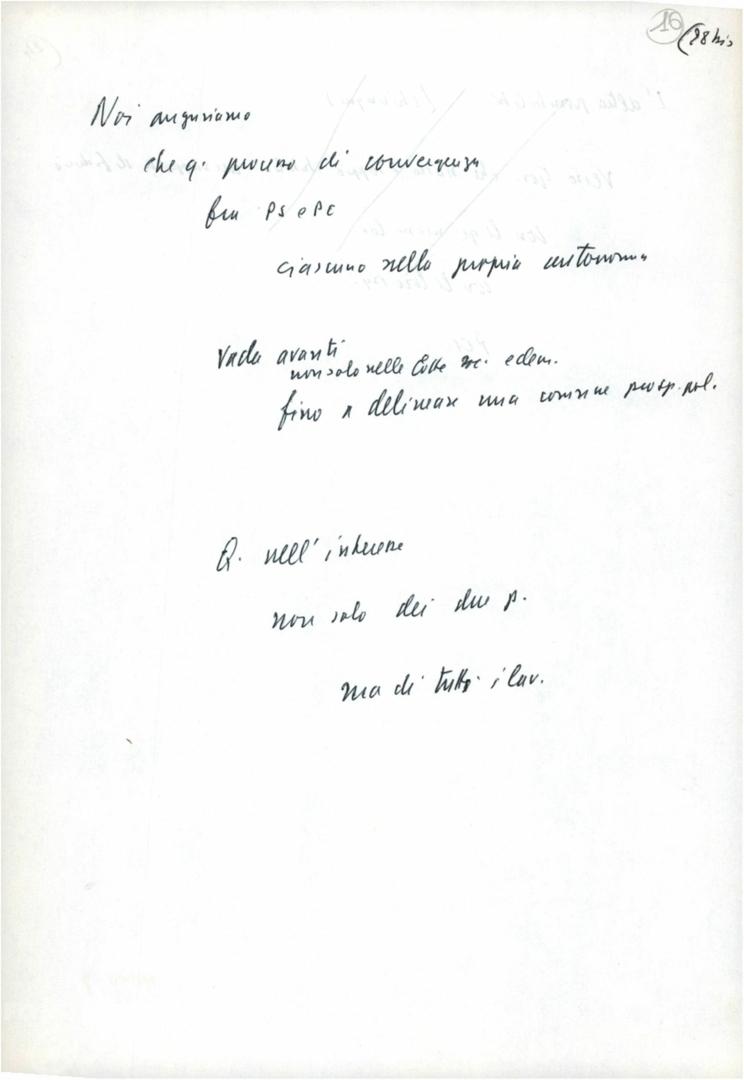 16 (28 bis
Noi auguriamo
che q. processo di convergenza
fra PS e PC
ciascuno nella propria autonomia
Vada avanti
non solo nelle lotte
fino a delineare una comune prosp. pol.
Q. nell'interesse
non solo dei due p.
ma di tutti i lav.